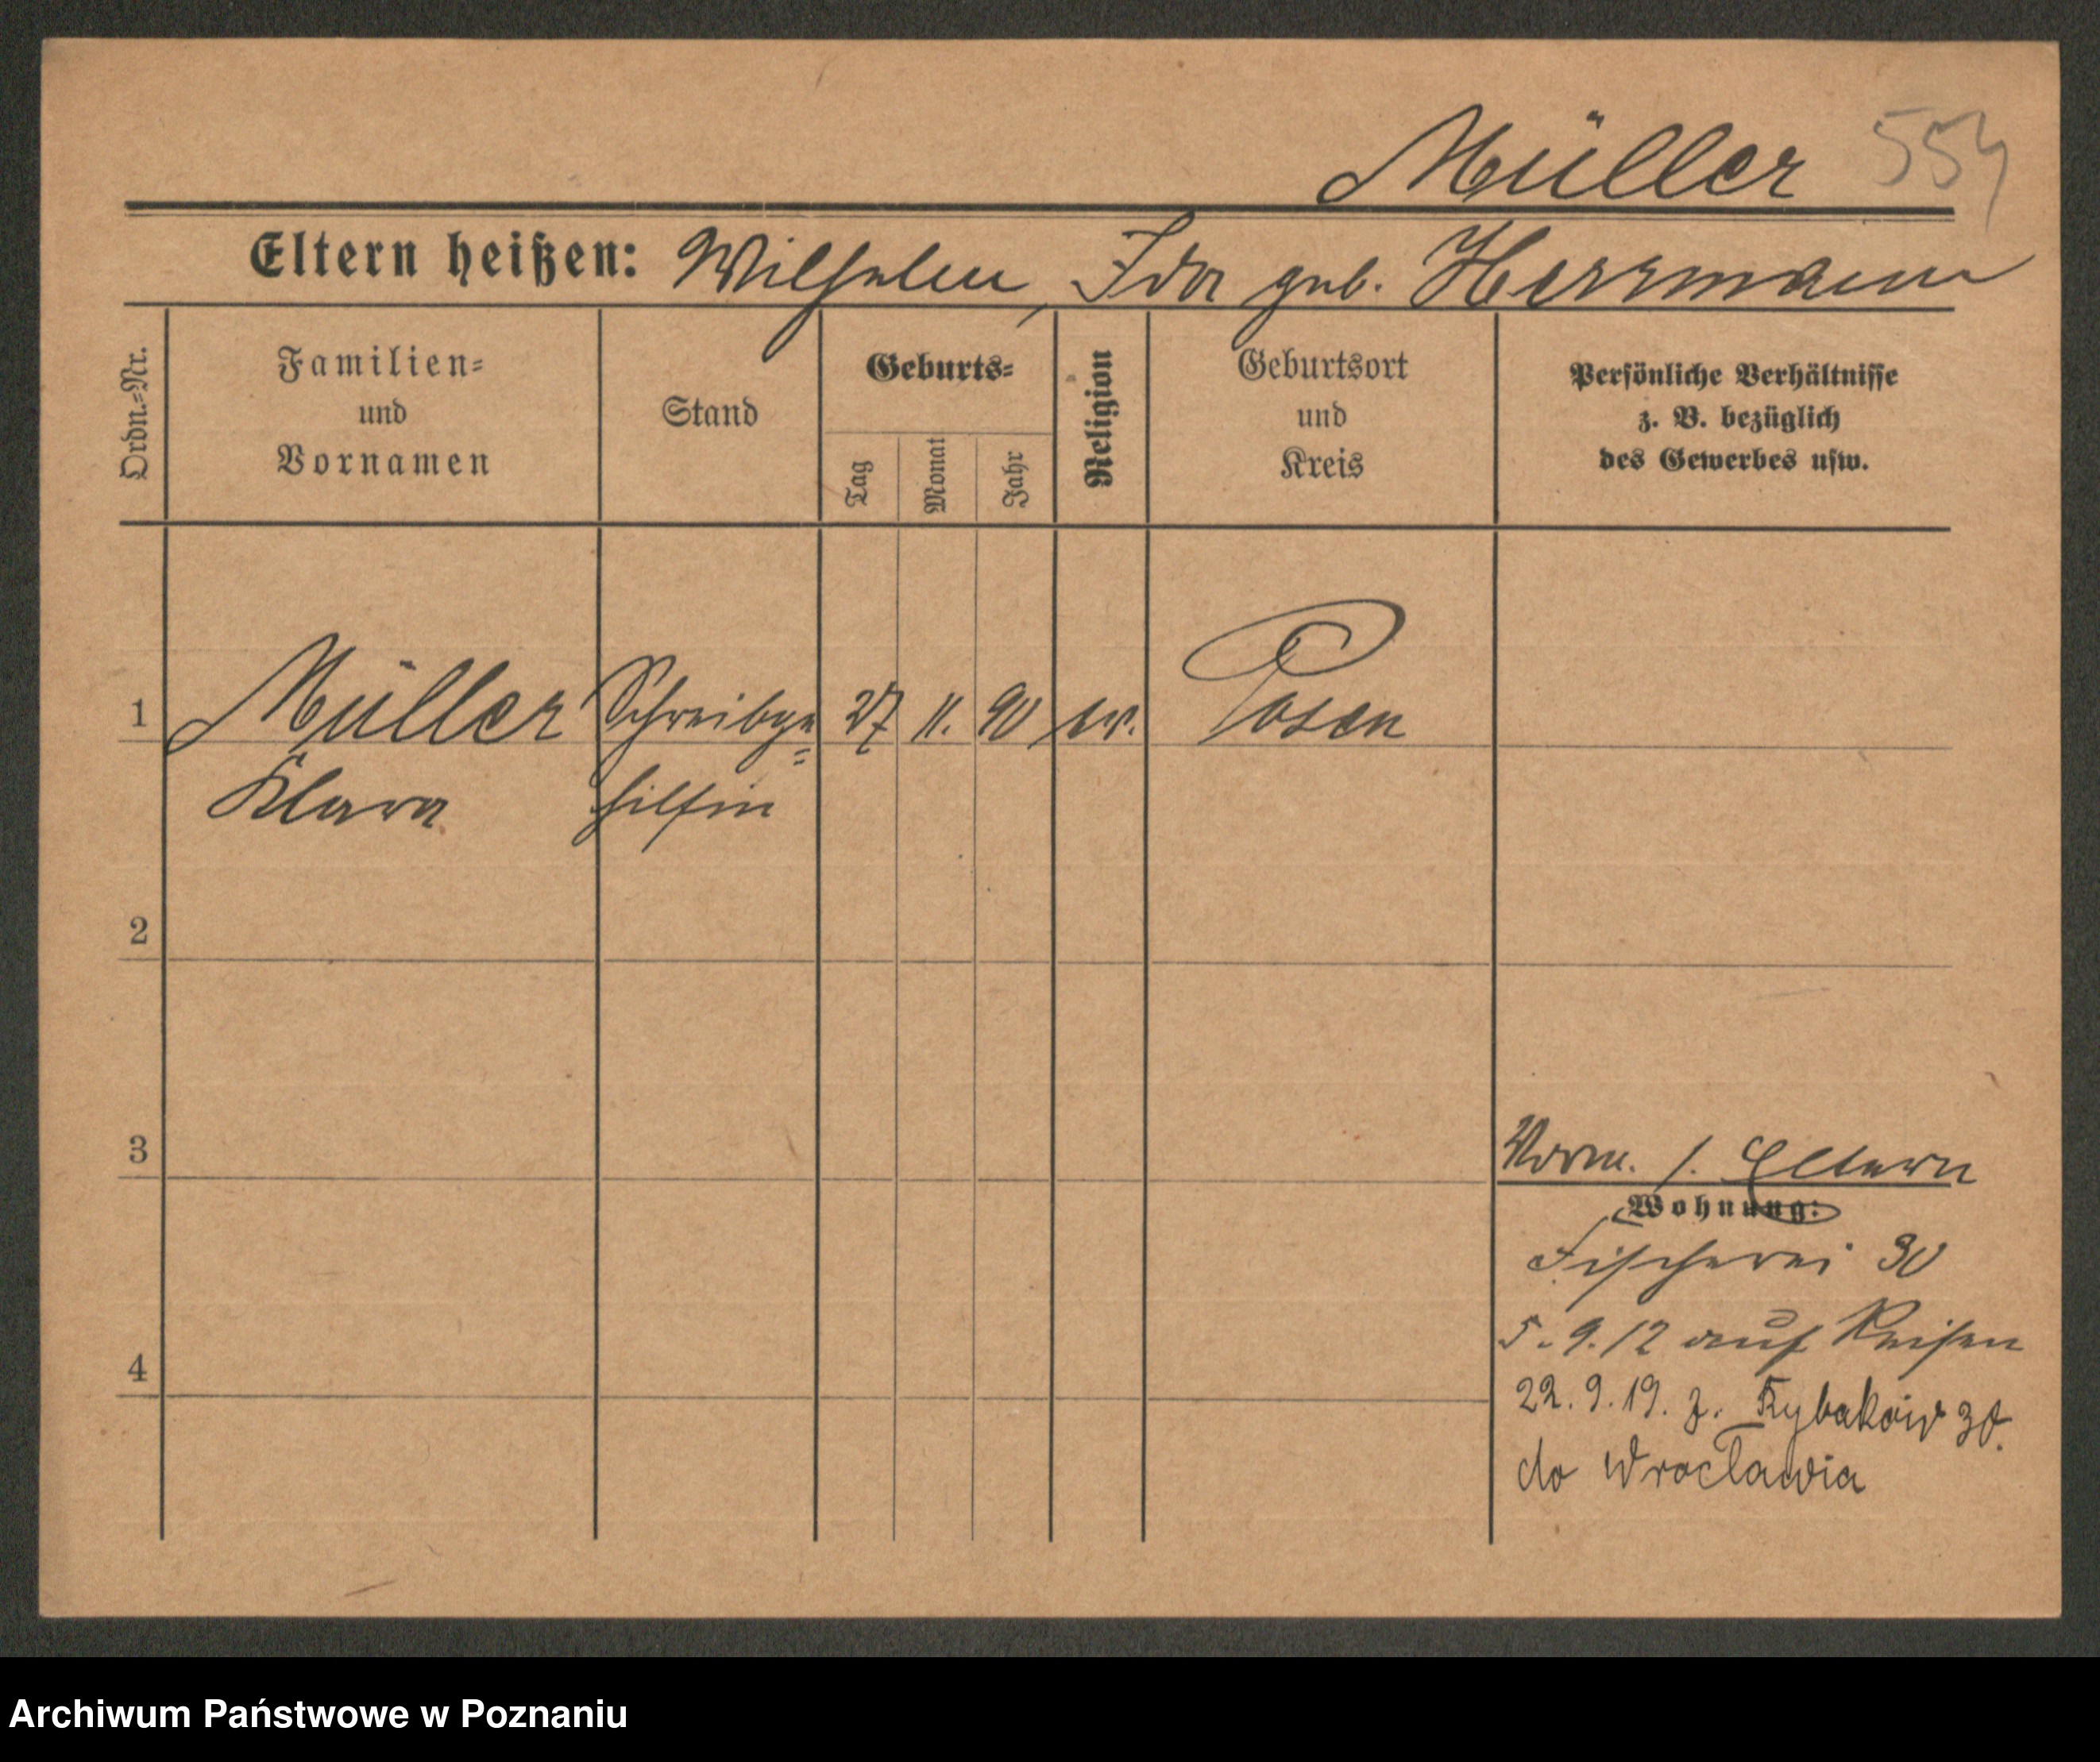 Müller 554
Eltern heißen: Wilhelm, Ida geb. Herrmann
Ordn.-Nr.
Familien-
und
Vornamen
Stand
Geburts-
Tag
Monat
Jahr
Religion
Geburtsort
und
Kreis
Persönliche Verhältnisse
z. B. bezüglich
des Gewerbes usw.
1 Müller Schreibge= 27 11. 90 ev. Posen
Klara hilfin
2
3
Vorm. s. Eltern
Wohnung:
Fischerei 30
5.9.12 auf Reisen
4
22.9.19. z. Rybaków 30.
do Wrocławia
Archiwum Państwowe w Poznaniu